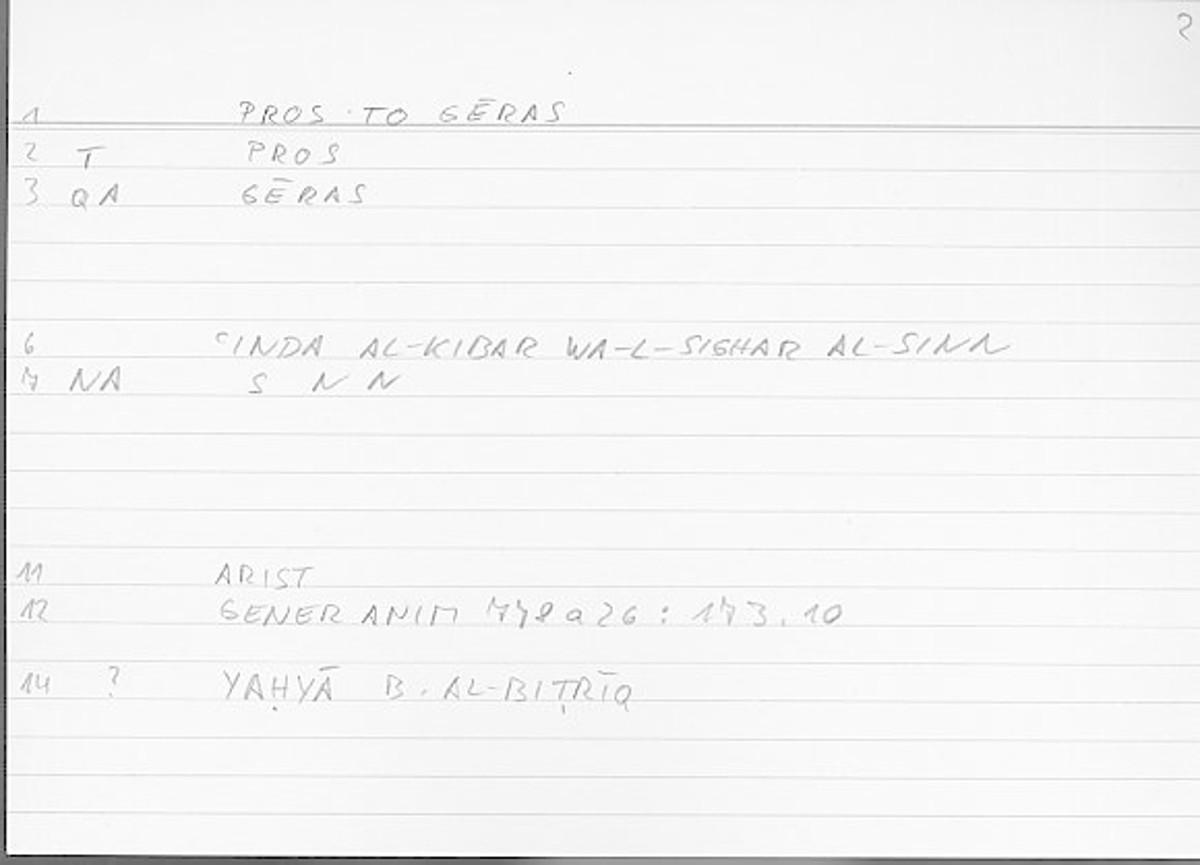 2
1 PROS TO GĒRAS
2 T PROS
3 QA GĒRAS
6 ʿINDA AL-KIBAR WA-L-SIGHAR AL-SINN
7 NA S N N
11 ARIST
12 GENER ANIM 778a26 : 173.10
14 ? YAḤYĀ B. AL-BIṬRĪQ